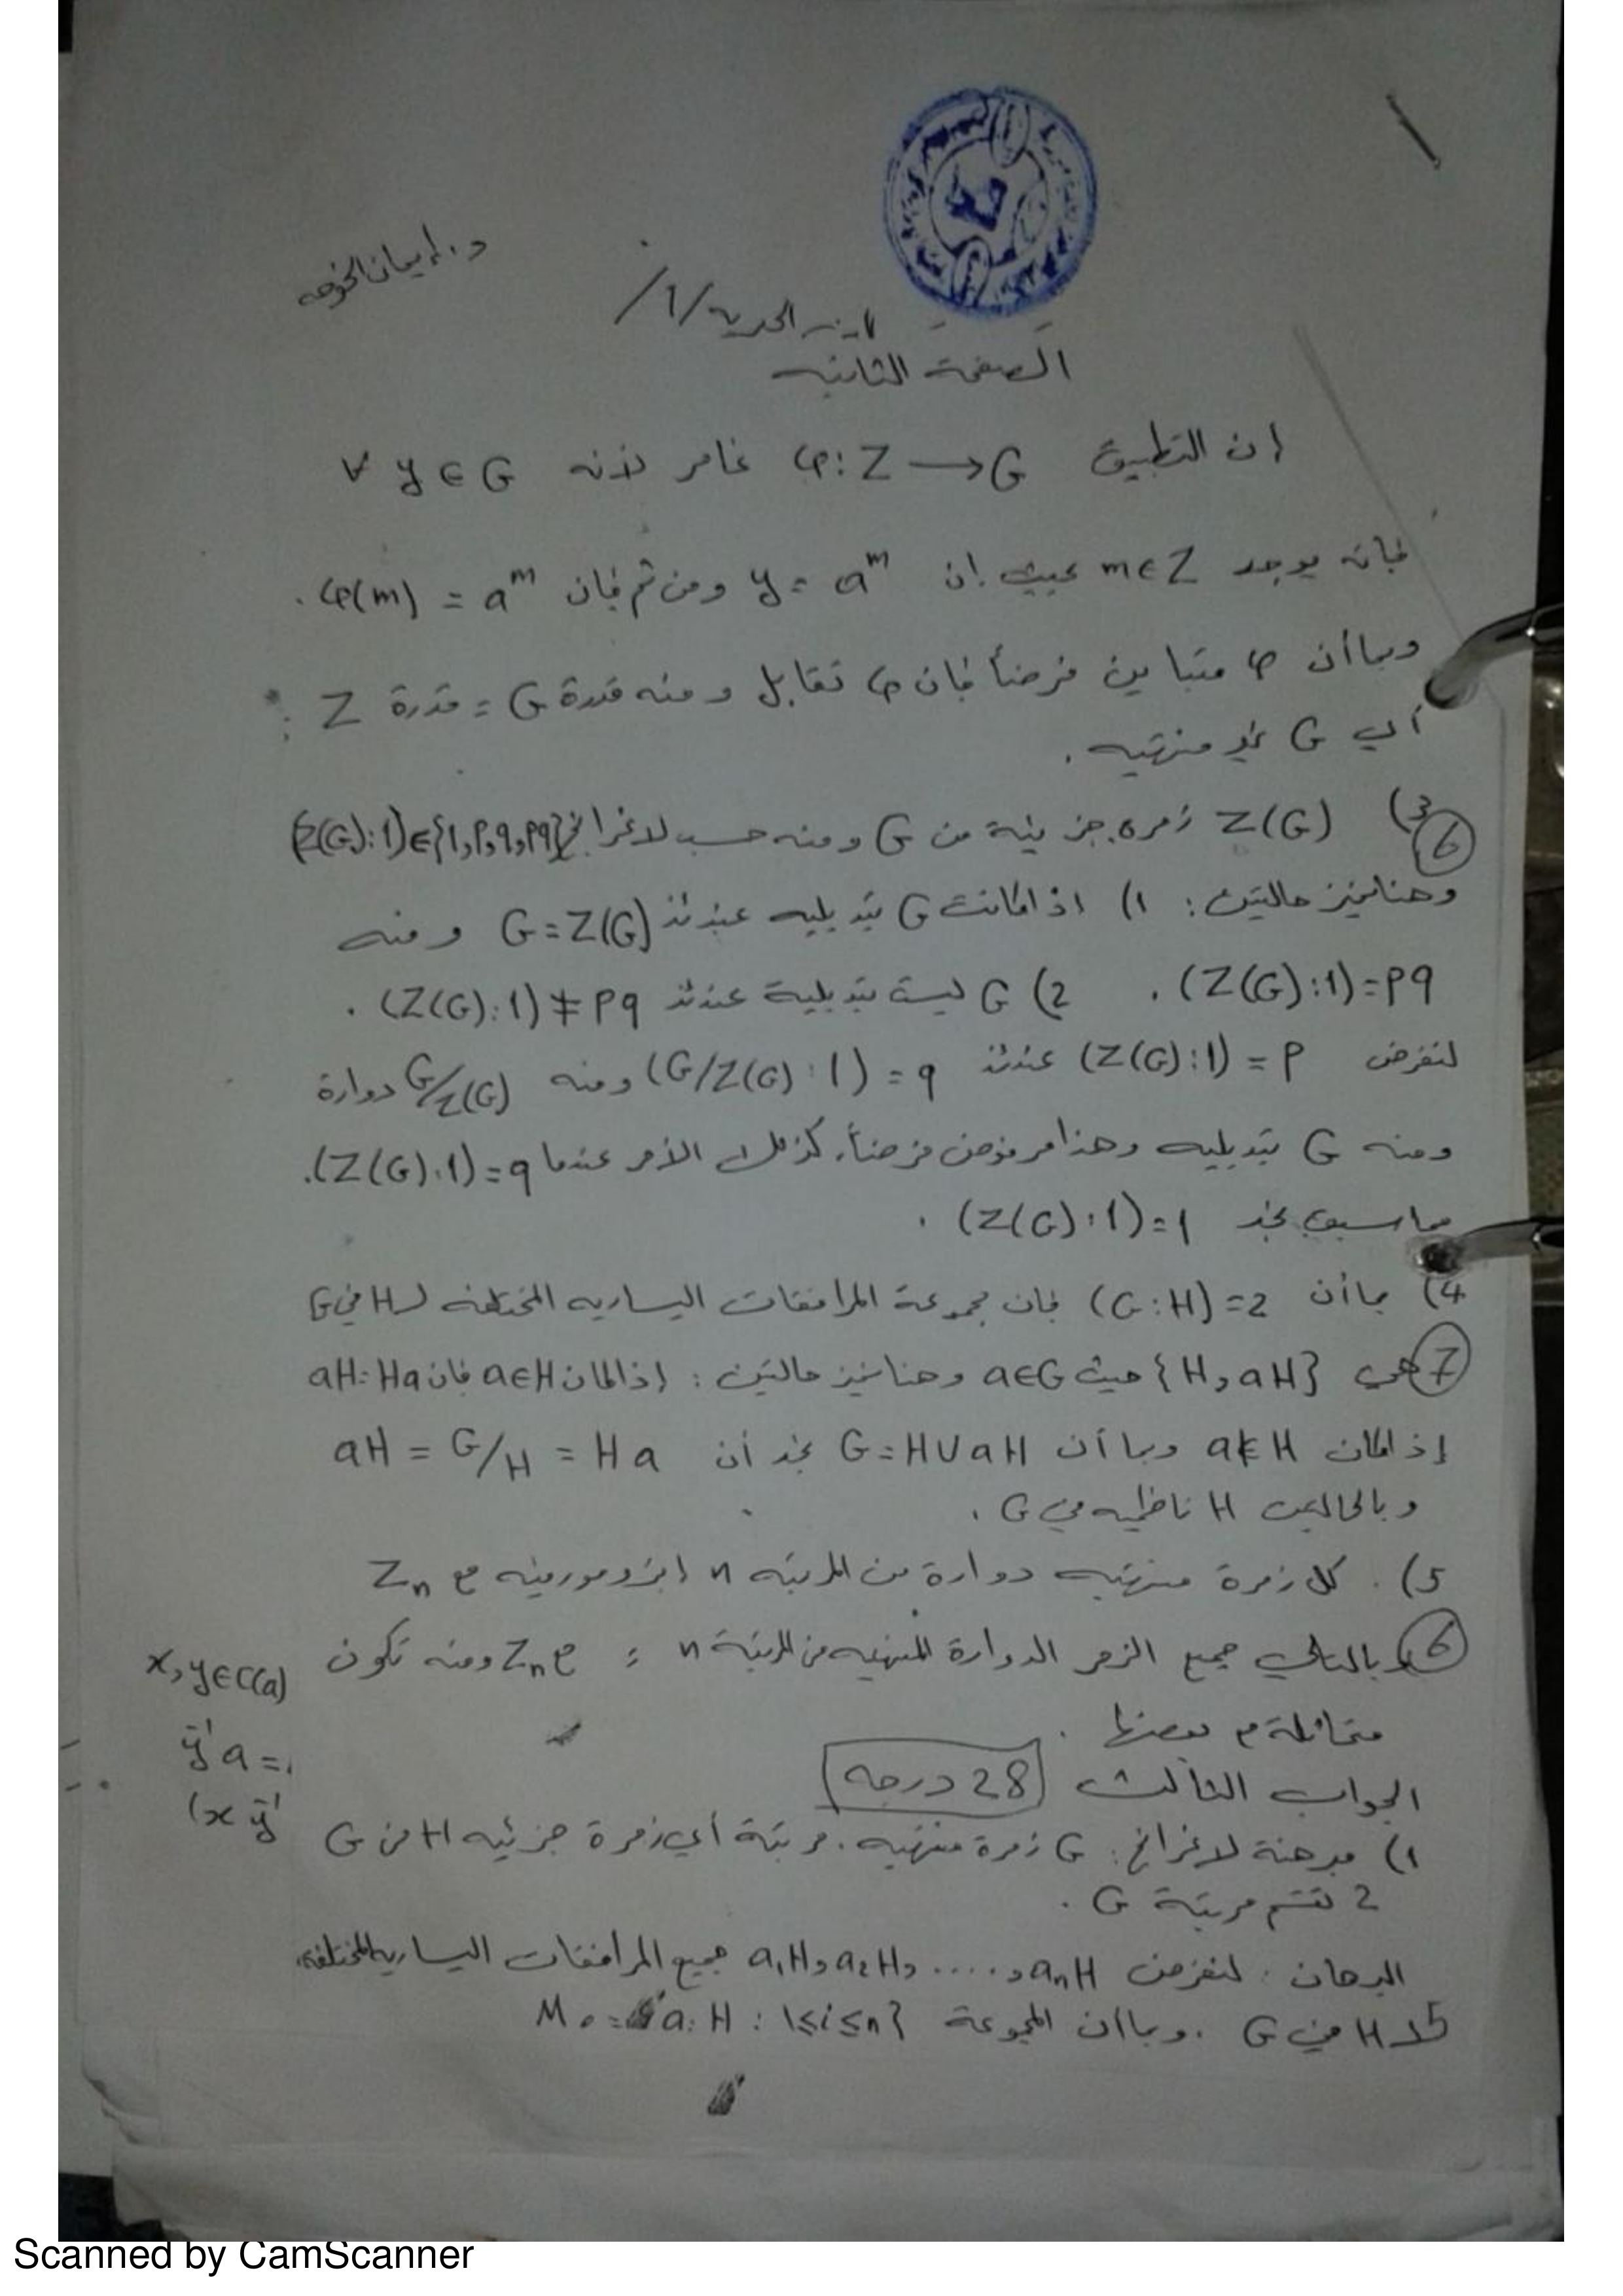 د. إيمان الخوجه
البنى الجبرية /1/
الصفحة الثانيه
إن التطبيق φ: Z → G غامر لأنه ∀ y ∈ G
فإنه يوجد m ∈ Z بحيث إن y = a^m ومن ثم فإن φ(m) = a^m .
وبما أن φ متباين فرضاً فإن φ تقابل ومنه قدرة G = قدرة Z
أي G غير منتهيه .
3) Z(G) زمره جزئية من G ومنه حسب لاغرانج (Z(G):1) ∈ {1, p, q, pq}
6
وهنا نميز حالتين : 1) اذا كانت G تبديليه عندئذ G = Z(G) ومنه
(Z(G):1) = pq . 2) G ليست تبديلية عندئذ (Z(G):1) ≠ pq .
لنفرض (Z(G):1) = p عندئذ (G/Z(G) : 1) = q ومنه G/Z(G) دوارة
ومنه G تبديليه وهذا مرفوض فرضاً. كذلك الأمر عندما (Z(G):1) = q .
مما سبق نجد (Z(G):1) = 1 .
4) بما أن (G:H) = 2 فإن مجموعة المرافقات اليساريه المختلفه لـ H في G
7 هي {H, aH} حيث a∈G وهنا نميز حالتين : إذا كان a∈H فإن aH = Ha
إذا كان a∉H وبما أن G = H ∪ aH نجد أن aH = G/H = Ha
وبالحالتين H ناظميه في G .
5) . كل زمرة منتهيه دوارة من المرتبه n ايزومورفيه مع Zn
6 وبالتالي جميع الزمر الدوارة المنتهيه من المرتبة n ≅ Zn ومنه تكون
متماثلة مع بعضها .
x, y ∈ C(a)
y⁻¹a =
(x y⁻¹
الجواب الثالث 28 درجه
1) مبرهنة لاغرانج : G زمرة منتهيه . مرتبة أي زمرة جزئيه H من G
2 تقسم مرتبة G .
البرهان : لنفرض a₁H, a₂H, ....., aₙH جميع المرافقات اليساريه المختلفه
5 لـ H في G . وبما أن المجموعة M = { aᵢH : 1≤i≤n }
Scanned by CamScanner